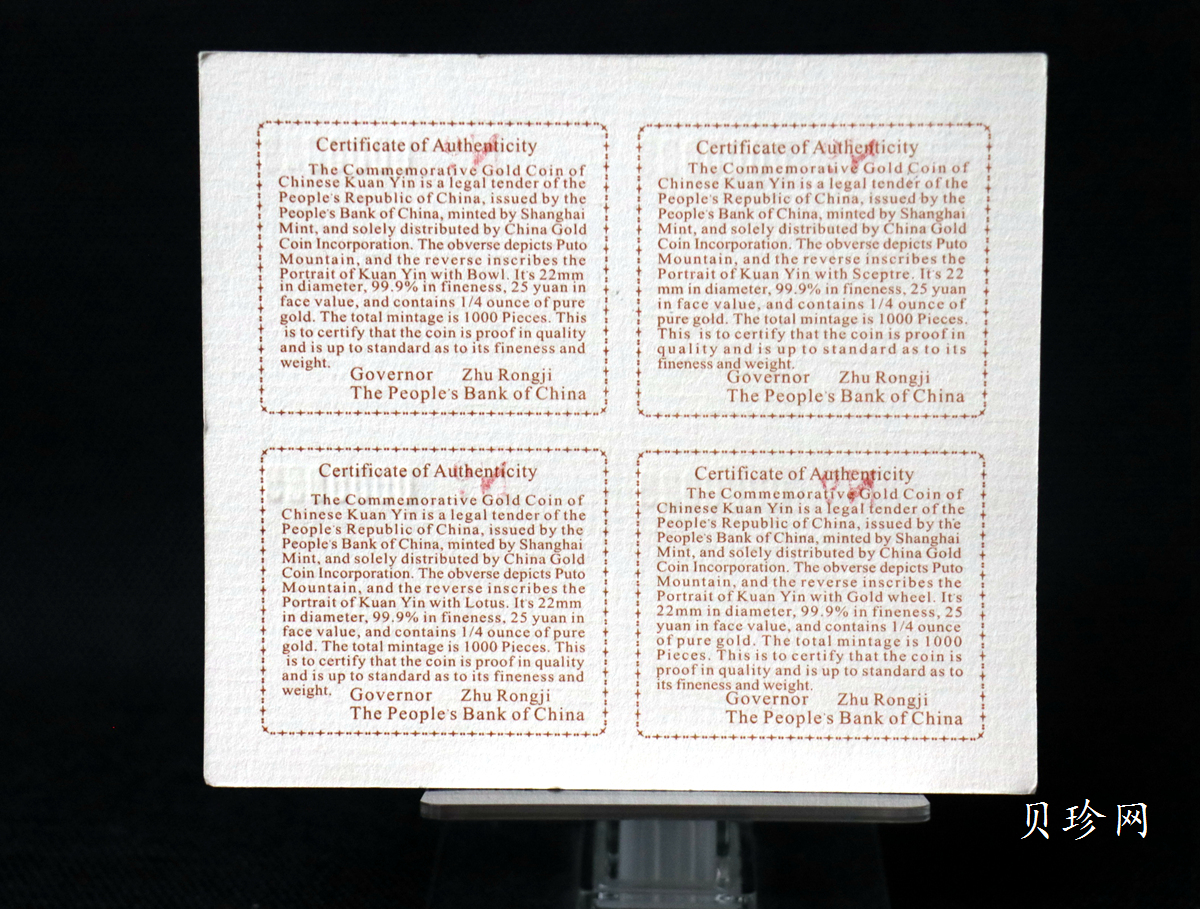 Certificate of Authenticity
The Commemorative Gold Coin of
Chinese Kuan Yin is a legal tender of the
People's Republic of China, issued by the
People's Bank of China, minted by Shanghai
Mint, and solely distributed by China Gold
Coin Incorporation. The obverse depicts Puto
Mountain, and the reverse inscribes the
Portrait of Kuan Yin with Bowl. It's 22mm
in diameter, 99.9% in fineness, 25 yuan in
face value, and contains 1/4 ounce of pure
gold. The total mintage is 1000 Pieces. This
is to certify that the coin is proof in quality
and is up to standard as to its fineness and
weight.
Governor Zhu Rongji
The People's Bank of China
Certificate of Authenticity
The Commemorative Gold Coin of
Chinese Kuan Yin is a legal tender of the
People's Republic of China, issued by the
People's Bank of China, minted by Shanghai
Mint, and solely distributed by China Gold
Coin Incorporation. The obverse depicts Puto
Mountain, and the reverse inscribes the
Portrait of Kuan Yin with Sceptre. It's 22
mm in diameter, 99.9% in fineness, 25 yuan
in face value, and contains 1/4 ounce of
pure gold. The total mintage is 1000 Pieces.
This is to certify that the coin is proof in
quality and is up to standard as to its
fineness and weight.
Governor Zhu Rongji
The People's Bank of China
Certificate of Authenticity
The Commemorative Gold Coin of
Chinese Kuan Yin is a legal tender of the
People's Republic of China, issued by the
People's Bank of China, minted by Shanghai
Mint, and solely distributed by China Gold
Coin Incorporation. The obverse depicts Puto
Mountain, and the reverse inscribes the
Portrait of Kuan Yin with Lotus. It's 22mm
in diameter, 99.9% in fineness, 25 yuan in
face value, and contains 1/4 ounce of pure
gold. The total mintage is 1000 Pieces. This
is to certify that the coin is proof in quality
and is up to standard as to its fineness and
weight. Governor Zhu Rongji
The People's Bank of China
Certificate of Authenticity
The Commemorative Gold Coin of
Chinese Kuan Yin is a legal tender of the
People's Republic of China, issued by the
People's Bank of China, minted by Shanghai
Mint, and solely distributed by China Gold
Coin Incorporation. The obverse depicts Puto
Mountain, and the reverse inscribes the
Portrait of Kuan Yin with Gold wheel. It's
22mm in diameter, 99.9% in fineness, 25
yuan in face value, and contains 1/4 ounce
of pure gold. The total mintage is 1000
Pieces. This is to certify that the coin is
proof in quality and is up to standard as to
its fineness and weight.
Governor Zhu Rongji
The People's Bank of China
贝珍网